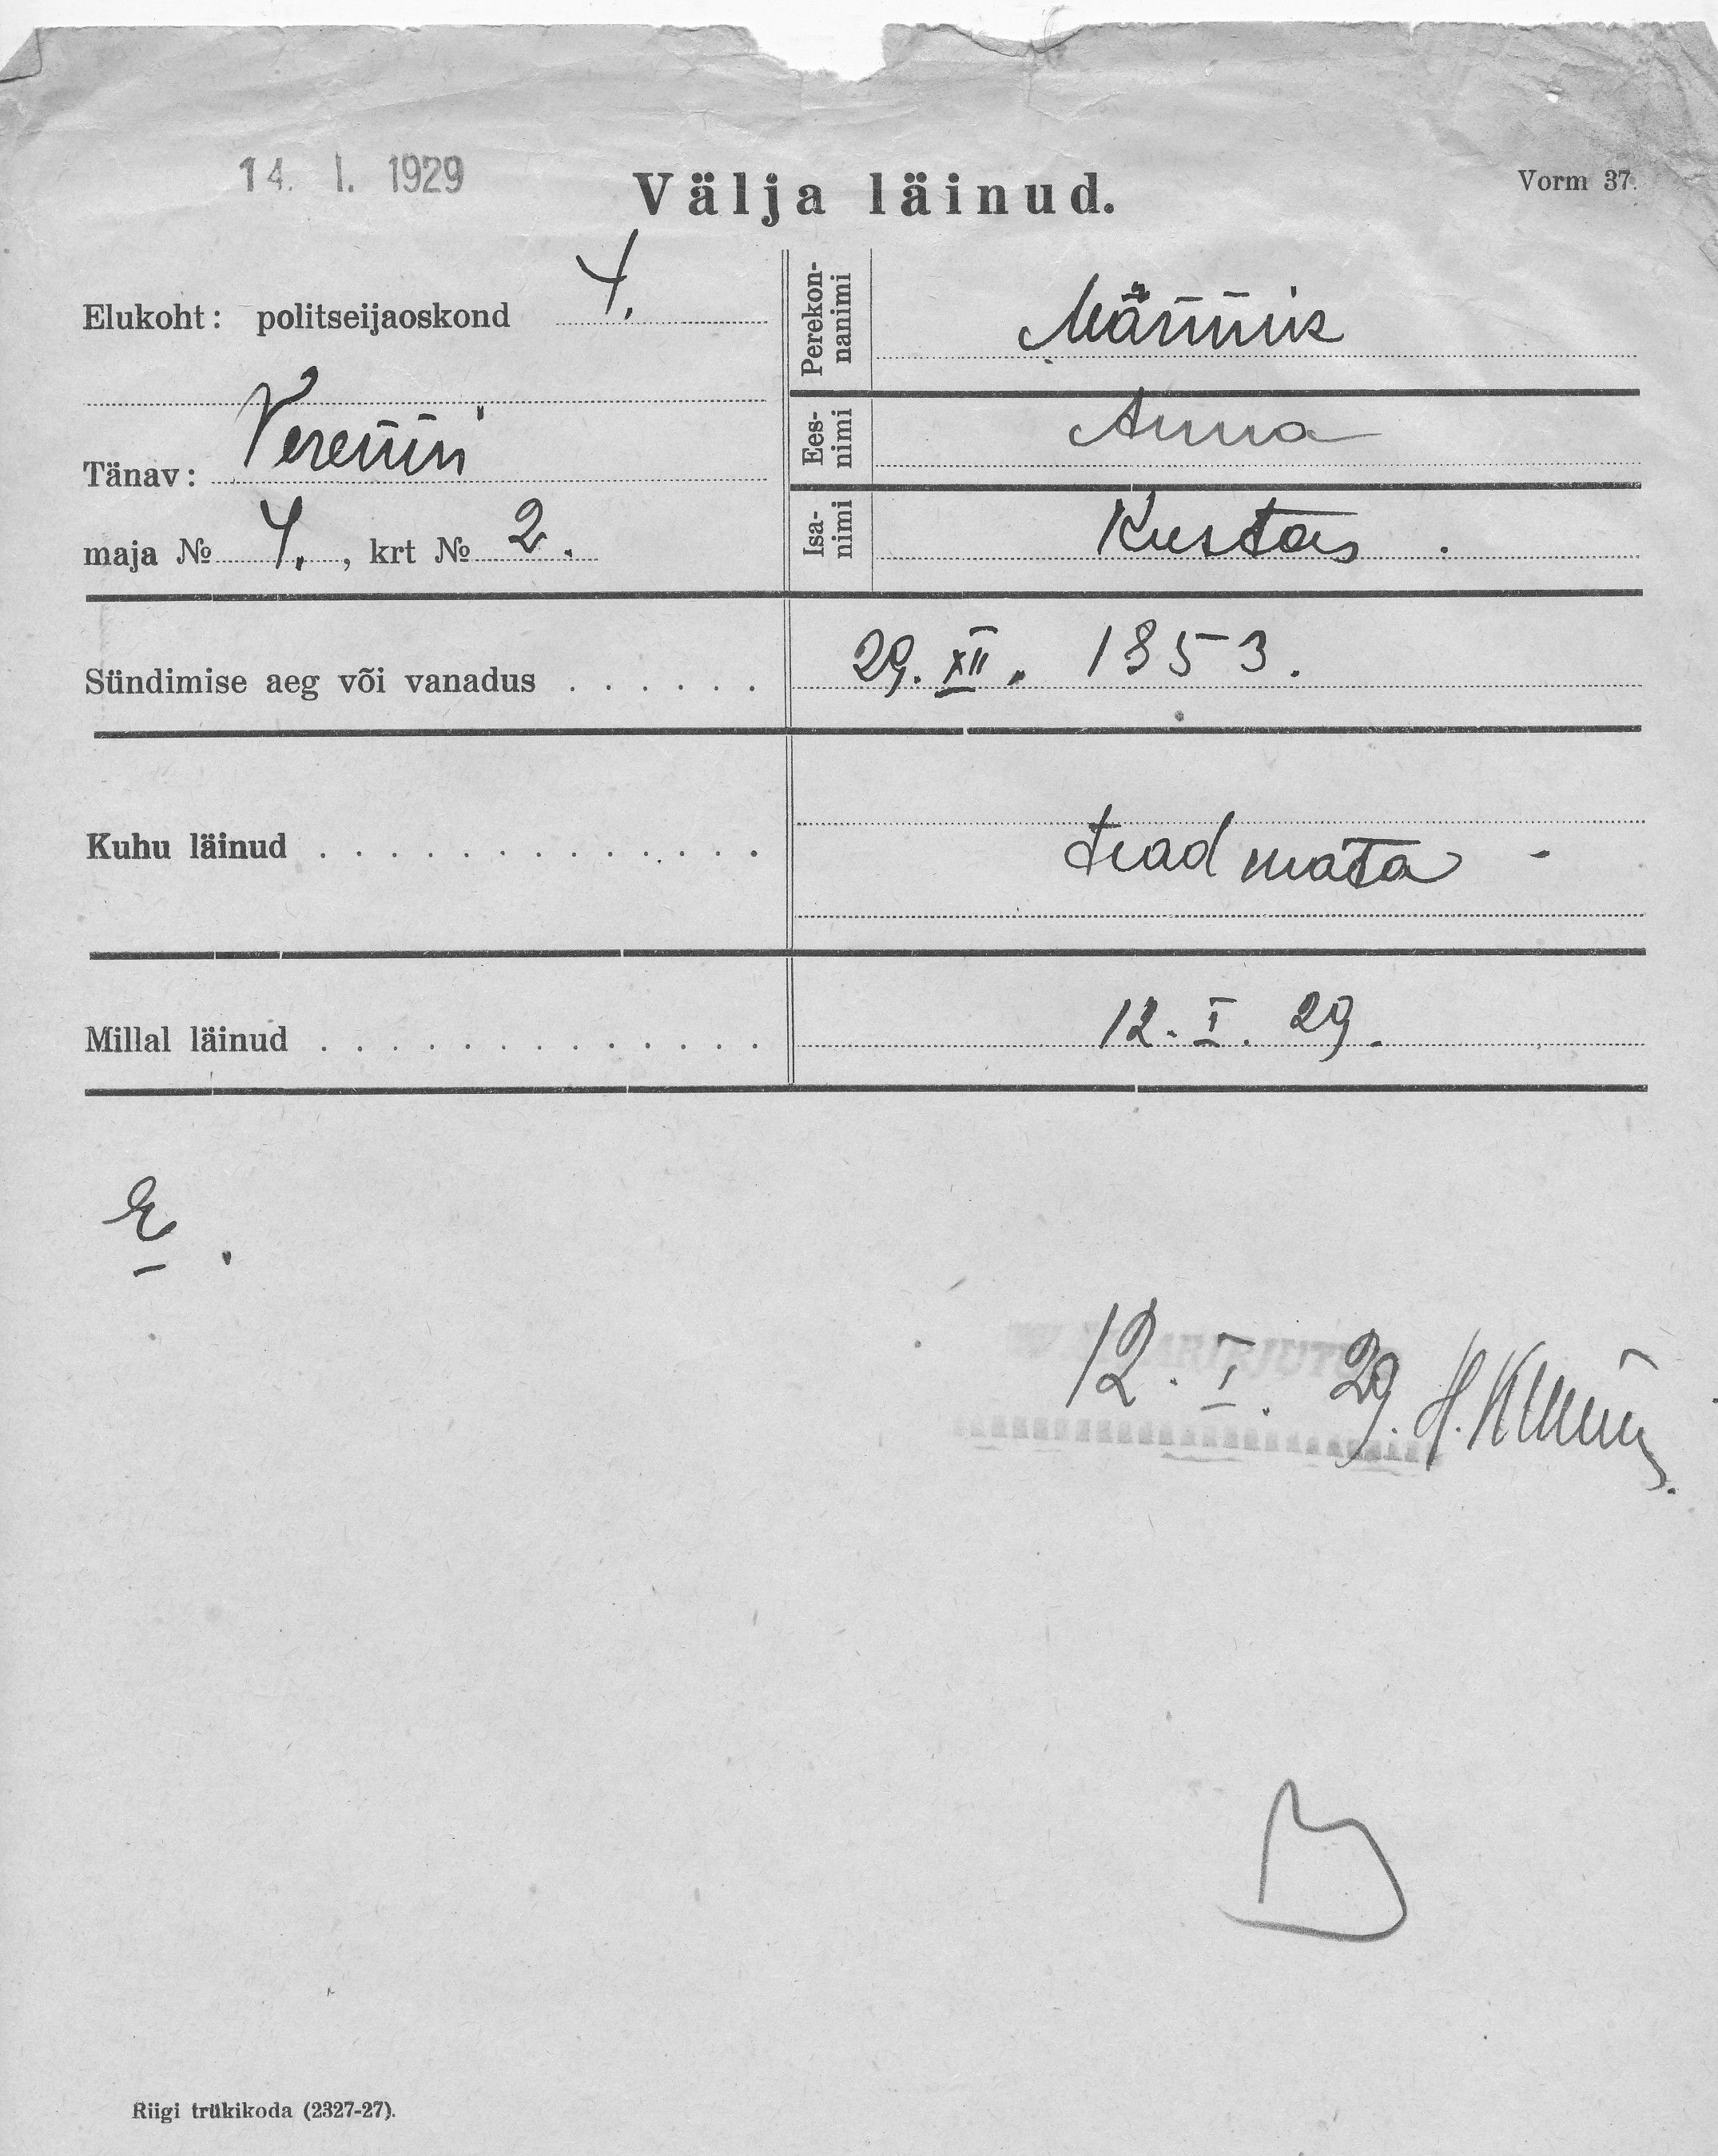 14. I. 1929
Välja läinud.
Vorm 37.
Elukoht: politseijaoskond 4.
Tänav: Verenni
maja № 4., krt № 2.
Perekon-
nanimi
Männik
Ees-
nimi
Anna
Isa-
nimi
Kustas.
Sündimise aeg või vanadus . . . . . . 29. XII. 1853.
Kuhu läinud . . . . . . . . . . . . . . tead mata -
Millal läinud . . . . . . . . . . . . . . 12. I. 29.
E.
12. I. 29.
Riigi trükikoda (2327-27).